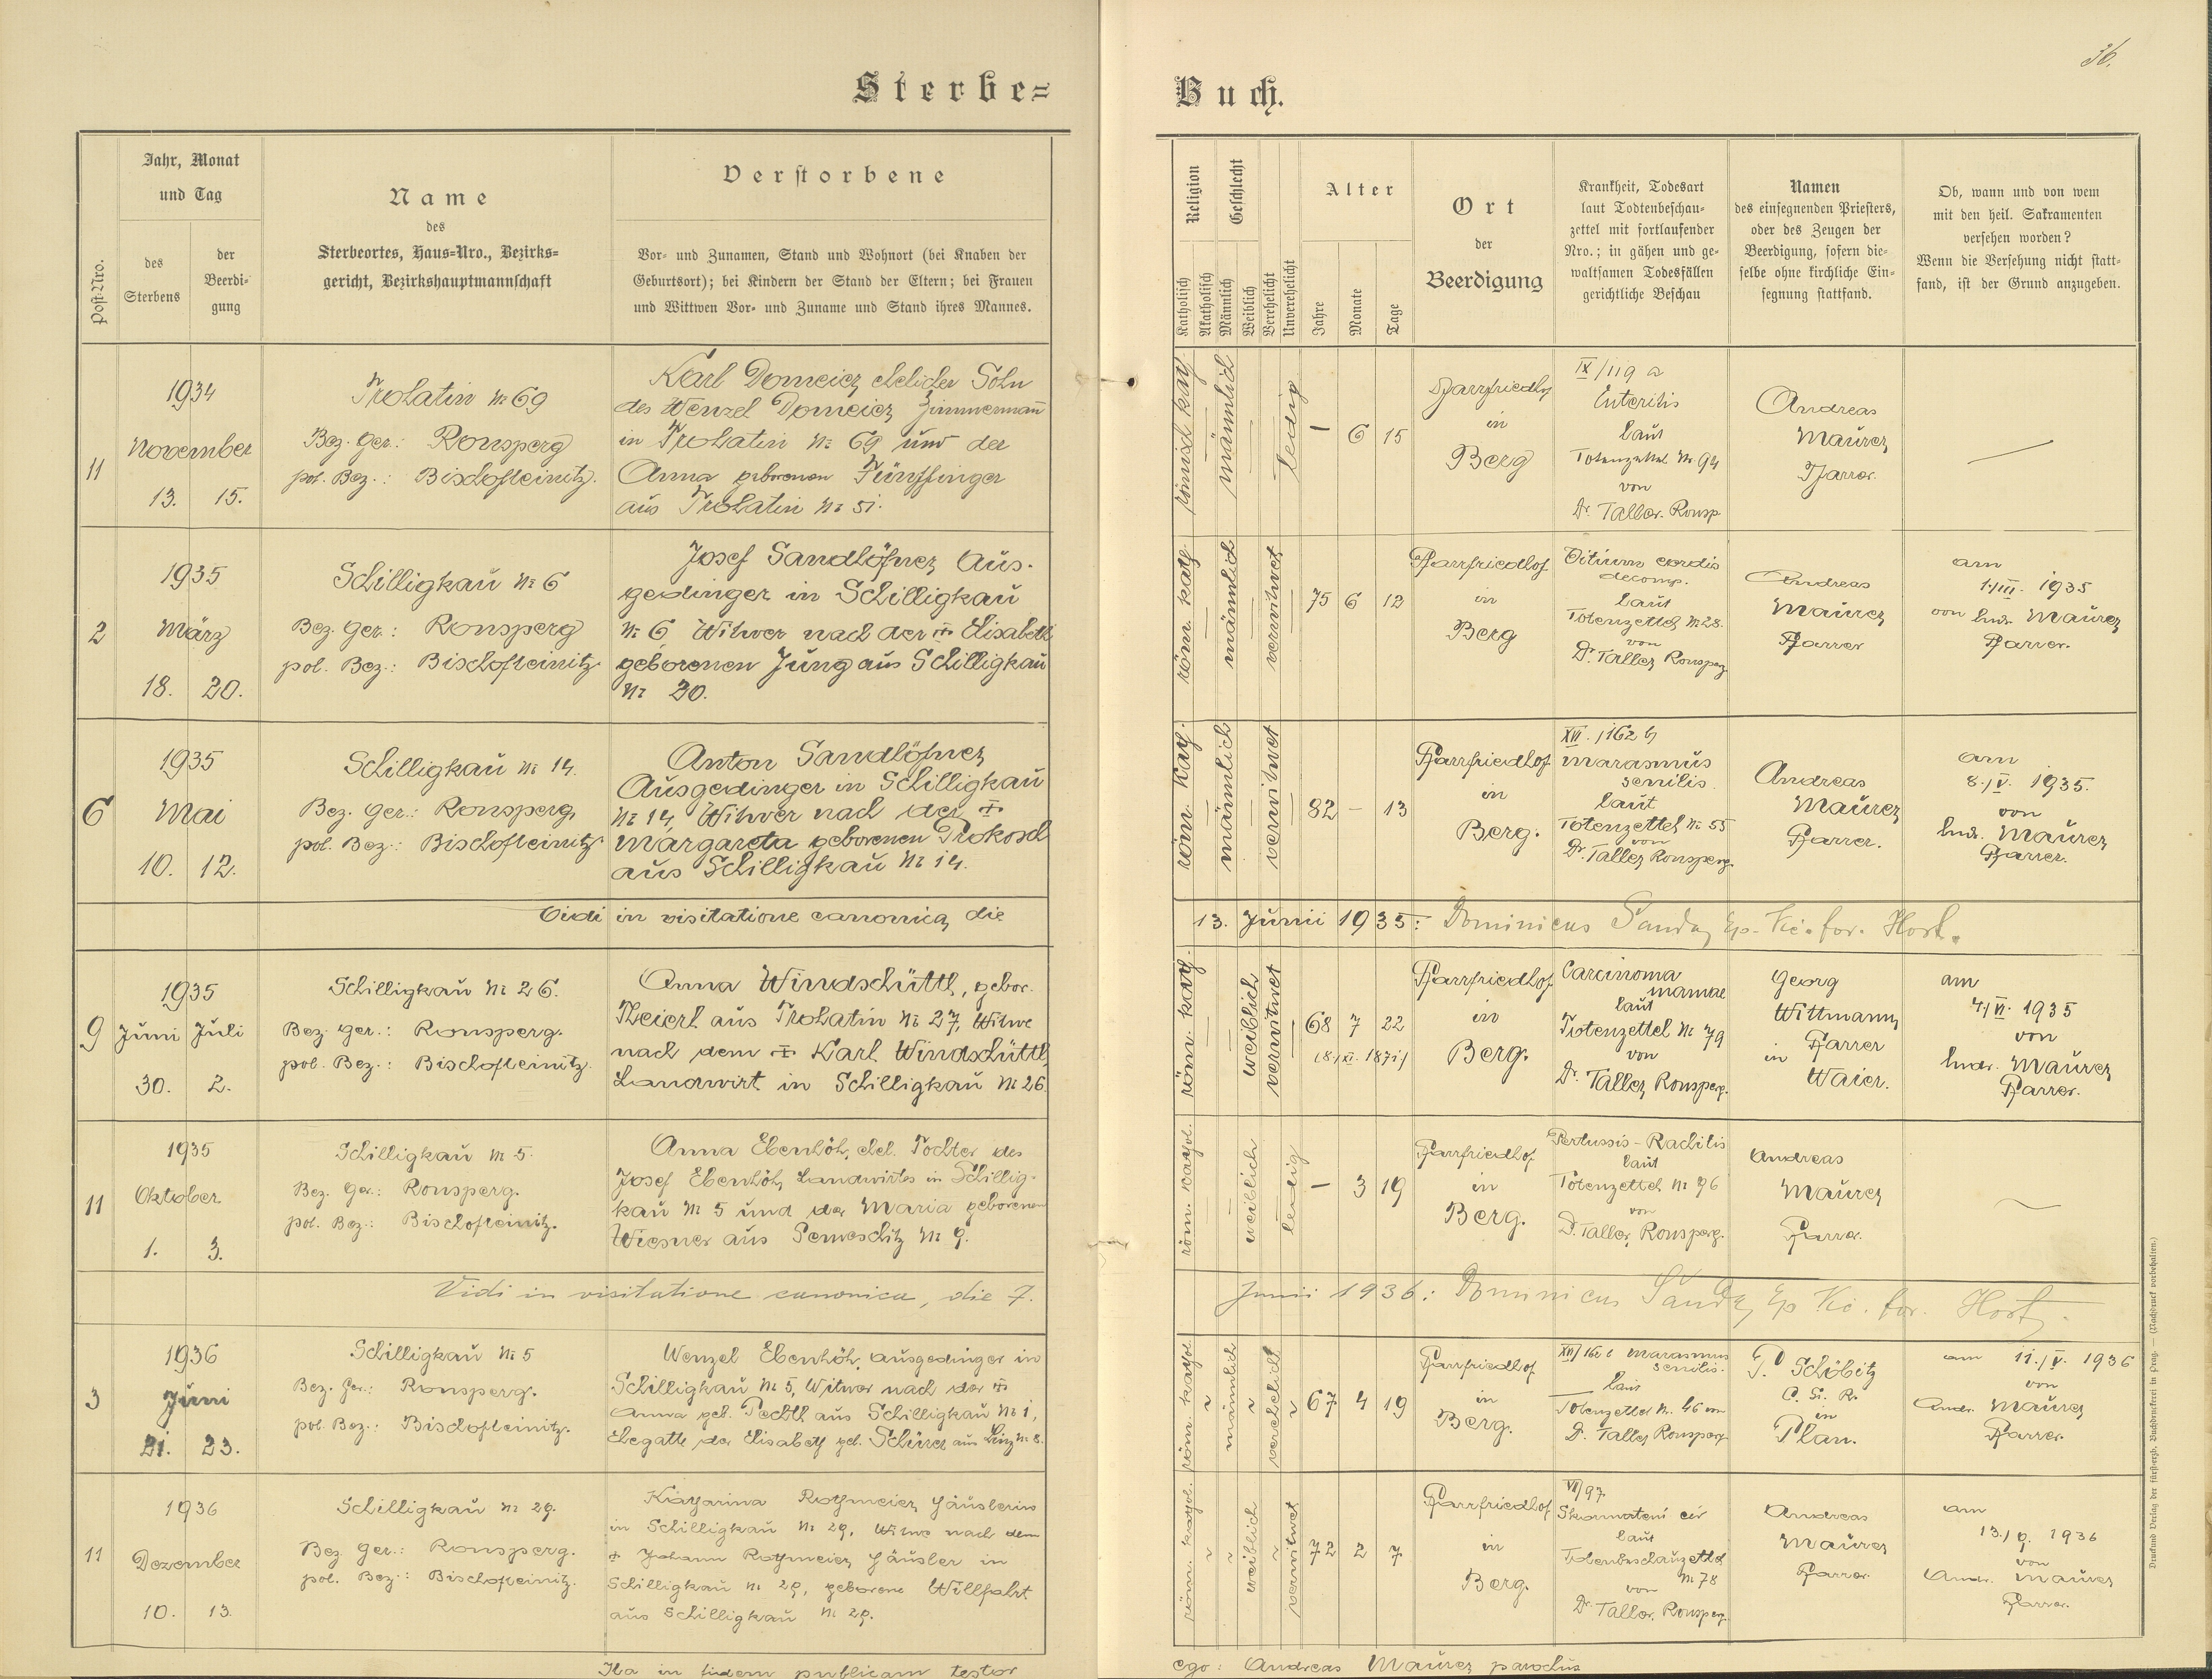 36.
Sterbe=
Buch.
Post-Nro.
Jahr, Monat
und Tag
des
Sterbens
der
Beerdi-
gung
Name
des
Sterbeortes, Haus-Nro., Bezirks-
gericht, Bezirkshauptmannschaft
Verstorbene
Vor- und Zunamen, Stand und Wohnort (bei Knaben der
Geburtsort); bei Kindern der Stand der Eltern; bei Frauen
und Wittwen Vor- und Zuname und Stand ihres Mannes.
Religion
Katholisch
Akatholisch
Geschlecht
Männlich
Weiblich
Verehelicht
Unverehelicht
Alter
Jahre
Monate
Tage
Ort
der
Beerdigung
Krankheit, Todesart
laut Todtenbeschau-
zettel mit fortlaufender
Nro.; in gähen und ge-
waltsamen Todesfällen
gerichtliche Beschau
Namen
des einsegnenden Priesters,
oder des Zeugen der
Beerdigung, sofern die-
selbe ohne kirchliche Ein-
segnung stattfand.
Ob, wann und von wem
mit den heil. Sakramenten
versehen worden?
Wenn die Versehung nicht statt-
fand, ist der Grund anzugeben.
11
1934
November
13. 15.
Trohatin № 69
Bez. Ger.: Ronsperg
pol. Bez.: Bischofteinitz.
Karl Domeier, ehelicher Sohn
des Wenzel Domeier, Zimmermann
in Trohatin № 69 und der
Anna geborenen Fünffinger
aus Trohatin № 51.
römisch kath.
männlich
ledig
— 6 15
Pfarrfriedhof
in
Berg
IX/119 a
Enteritis
laut
Totenzettel № 94
von
Dr. Taller. Ronsp
Andreas
Maurer,
Pfarrer.
—
2
1935
März
18. 20.
Schilligkau № 6
Bez. Ger.: Ronsperg
pol. Bez.: Bischofteinitz.
Josef Sandlöhner, Aus-
gedinger in Schilligkau
№ 6, Witwer nach der ✝ Elisabeth
geborenen Jung aus Schilligkau
№ 20.
röm. kath.
männlich
verwitwet
75 6 12
Pfarrfriedhof
in
Berg
Vitium cordis
decomp.
laut
Totenzettel № 28.
von
Dr. Taller, Ronsperg
Andreas
Maurer
Pfarrer
am
1./III. 1935
von hndr. Maurer,
Pfarrer.
6
1935
Mai
10. 12.
Schilligkau № 14.
Bez. Ger.: Ronsperg,
pol. Bez.: Bischofteinitz.
Anton Sandlöhner,
Ausgedinger in Schilligkau
№ 14, Witwer nach der ✝
Margareta geborenen Prokosch
aus Schilligkau № 14.
röm. kath.
männlich
verwitwet
82 — 13
Pfarrfriedhof
in
Berg.
XVI./162 b
marasmus
senilis.
laut
Totenzettel № 55
von
Dr. Taller, Ronsperg.
Andreas
Maurer,
Pfarrer.
am
8./V. 1935.
von
hndr. Maurer,
Pfarrer.
Vidi in visitatione canonica, die
13. Junii 1935: Dominicus Šanda, Ep. Vic. for. Host.
9
1935
Juni Juli
30. 2.
Schilligkau № 26.
Bez. Ger.: Ronsperg.
pol. Bez.: Bischofteinitz.
Anna Windschüttl, gebor.
Theierl aus Trohatin № 27, Witwe
nach dem ✝ Karl Windschüttl,
Landwirt in Schilligkau № 26.
röm. kath.
weiblich
verwitwet
68 7 22
Pfarrfriedhof
in
Berg.
Carcinoma
mamae
laut
Totenzettel № 79
von
Dr. Taller, Ronsperg.
Georg
Wittmann,
Pfarrer
in
Waier.
am
4./VI. 1935
von
hndr. Maurer,
Pfarrer.
11
1935
Oktober
1. 3.
Schilligkau № 5.
Bez. Ger.: Ronsperg.
pol. Bez.: Bischofteinitz.
Anna Ebenhöh, ehel. Tochter des
Josef Ebenhöh, Landwirtes in Schillig-
kau № 5 und der Maria geborenen
Wiesner aus Semeschitz № 9.
röm. kathol.
weiblich
ledig
— 3 19
Pfarrfriedhof
in
Berg.
Pertussis - Rachitis
laut
Totenzettel № 96
von
Dr. Taller, Ronsperg.
Andreas
Maurer,
Pfarrer.
Vidi in visitatione canonica, die 7.
Junii 1936: Dominicus Šanda, Ep Vic. for. Host.
3
1936
Juni
21. 23.
Schilligkau № 5
Bez. Ger.: Ronsperg.
pol. Bez.: Bischofteinitz.
Wenzel Ebenhöh, Ausgedinger in
Schilligkau № 5, Witwer nach der ✝
Anna geb. Pechtl aus Schilligkau № 1,
Ehegatte der Elisabeth geb. Schürer aus Linz № 8.
röm kathol.
männlich
verehelicht
67 4 19
Pfarrfriedhof
in
Berg.
marasmus
senilis.
laut
Totenzettel № 46 von
Dr. Taller Ronsperg
P. Schöbitz
in
Plan.
am 11./V. 1936
von
Andr. Maurer,
Pfarrer.
11
1936
Dezember
10. 13.
Schilligkau № 29.
Bez Ger.: Ronsperg.
pol. Bez.: Bischofteinitz.
Katharina Rothmeier, Häuslerin
in Schilligkau № 29, Witwe nach dem
✝ Johann Rothmeier, Häusler in
Schilligkau № 29, geborene Willfahrt
aus Schilligkau № 29.
röm. kathol.
weiblich
verwitwet
72 2 7
Pfarrfriedhof
in
Berg.
VII/97
laut
Totenbeschauzettel
№ 78
von
Dr. Taller, Ronsperg.
Andreas
Maurer
Pfarrer.
am
13./9. 1936
von
Andr. Maurer,
Pfarrer.
Ita in fidem publicam testor
ego: Andreas Maurer, parochus
Druck und Verlag der fürsterzb. Buchdruckerei in Prag. — (Nachdruck vorbehalten.)